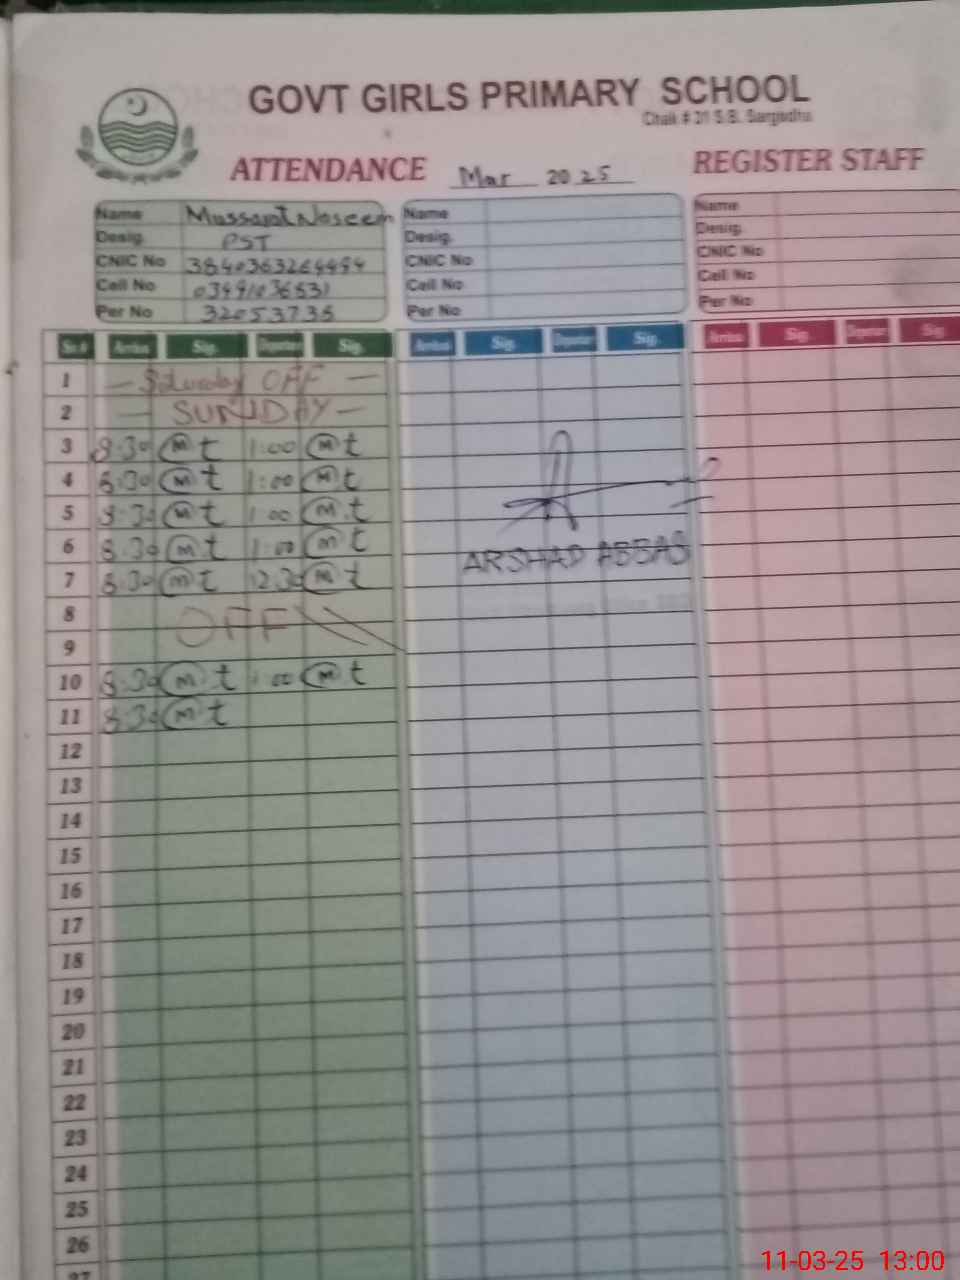 GOVT GIRLS PRIMARY SCHOOL
Chak # 31 S.B. Sargodha
ATTENDANCE Mar 2025 REGISTER STAFF
Name Mussarat Naseem Name Name
Desig. PST Desig. Desig.
CNIC No CNIC No CNIC No
Cell No Cell No Cell No
Per No 32053735 Per No Per No
Sr.# Arrival Sig. Departure Sig. Arrival Sig. Departure Sig. Arrival Sig. Departure Sig.
1 — Saturday OFF —
2 — SUNDAY —
3 8:30 m t 1:00 m t
4 8:30 m t 1:00 m t
5 8:30 m t 1:00 m t
6 8:30 m t 1:00 m t ARSHAD ABBAS
7 8:30 m t 12:30 m t
8 OFF
9
10 8:30 m t 1:00 m t
11 8:30 m t
12
13
14
15
16
17
18
19
20
21
22
23
24
25
26
27
11-03-25 13:00